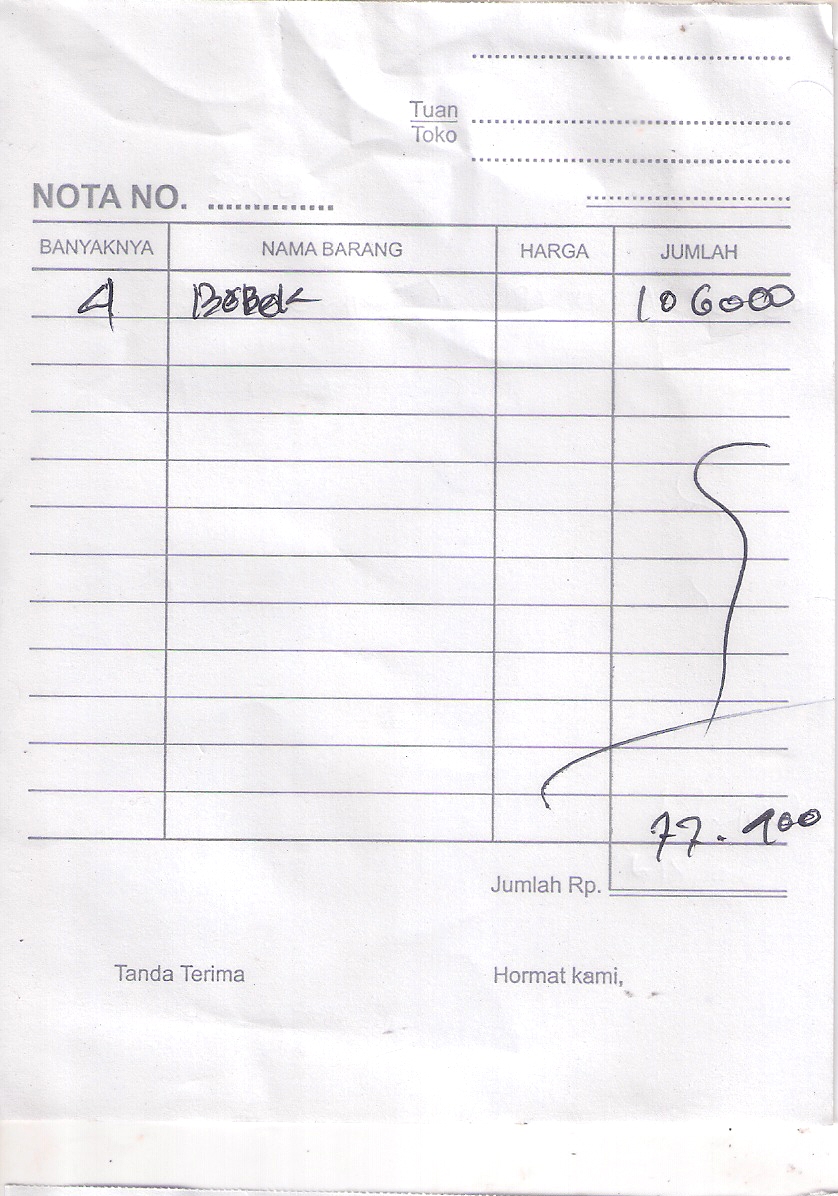 Tuan
Toko
NOTA NO. ..............
BANYAKNYA NAMA BARANG HARGA JUMLAH
4 BEBEK 106000
77.100
Jumlah Rp.
Tanda Terima Hormat kami,